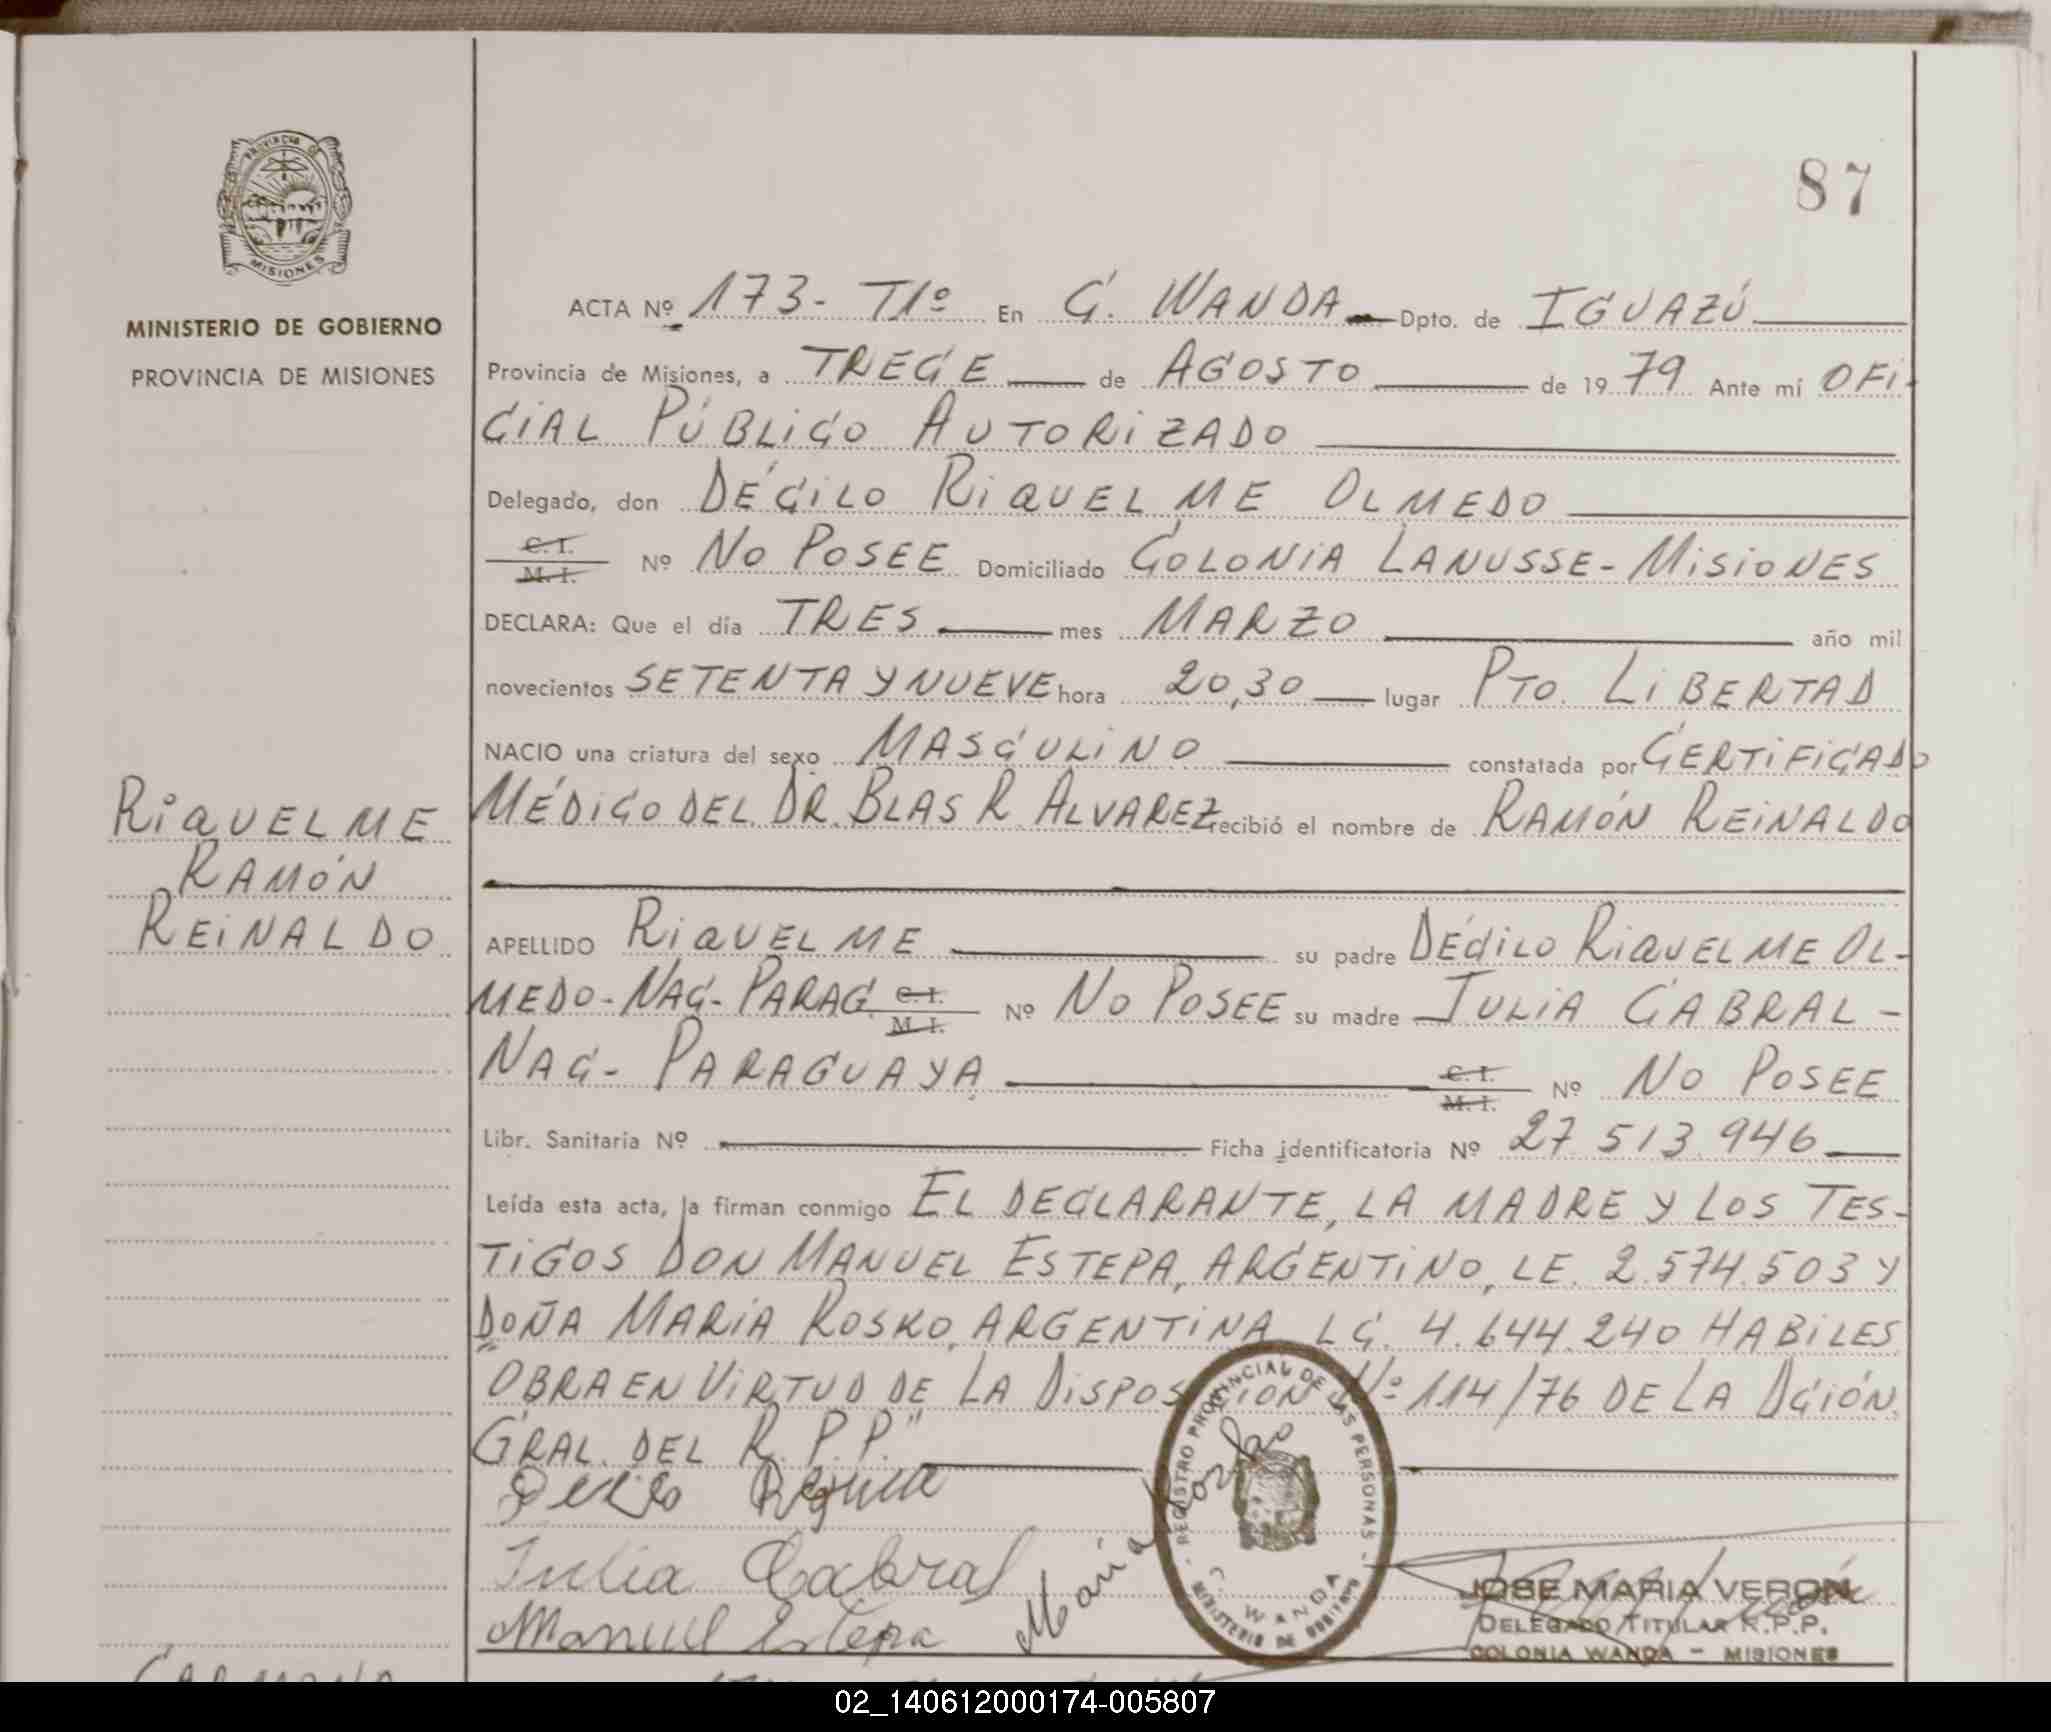 PROVINCIA DE
MISIONES
MINISTERIO DE GOBIERNO
PROVINCIA DE MISIONES
87
ACTA Nº 173- T1º En C. WANDA Dpto. de IGUAZÚ
Provincia de Misiones, a TRECE de AGOSTO de 19 79 Ante mí OFI-
CIAL PÚBLICO AUTORIZADO
Delegado, don DÉCILO RIQUELME OLMEDO
C. I.
M. I. Nº NO POSEE Domiciliado COLONIA LANUSSE - MISIONES
DECLARA: Que el día TRES mes MARZO año mil
novecientos SETENTA Y NUEVE hora 20,30 lugar PTO. LIBERTAD
NACIO una criatura del sexo MASCULINO constatada por CERTIFICADO
MÉDICO DEL DR. BLAS R. ALVAREZ recibió el nombre de RAMÓN REINALDO
RIQUELME
RAMÓN
REINALDO
APELLIDO RIQUELME su padre DÉCILO RIQUELME OL-
MEDO - NAC- PARAG. C. I. M. I. Nº NO POSEE su madre JULIA CABRAL -
NAC- PARAGUAYA C. I. M. I. Nº NO POSEE
Libr. Sanitaria Nº Ficha identificatoria Nº 27 513 946
Leída esta acta, la firman conmigo EL DECLARANTE, LA MADRE Y LOS TES-
TIGOS DON MANUEL ESTEPA, ARGENTINO, LE. 2.574.503 Y
DOÑA MARÍA ROSKO, ARGENTINA LC. 4.644.240 HABILES
"OBRA EN VIRTUD DE LA DISPOSICION Nº 114/76 DE LA DCIÓN.
GRAL. DEL R.P.P."
Julia Cabral
Manuel Estepa
María Rosko
REGISTRO PROVINCIAL DE LAS PERSONAS
C. WANDA
MINISTERIO DE GOBIERNO
JOSE MARIA VERÓN
DELEGADO TITULAR R.P.P.
COLONIA WANDA - MISIONES
02_140612000174-005807